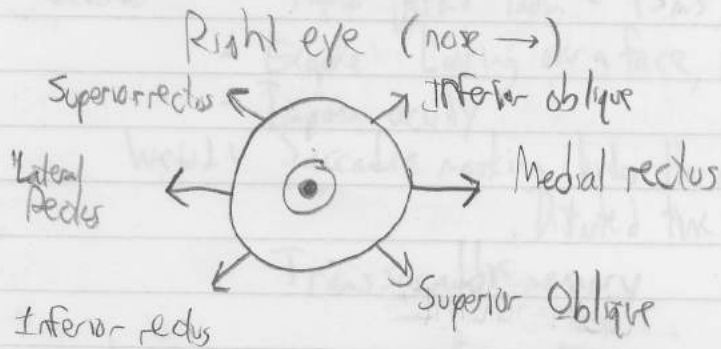 Right eye (nose →)
Superior rectus
Inferior oblique
Lateral
Rectus
Medial rectus
Inferior rectus
Superior Oblique